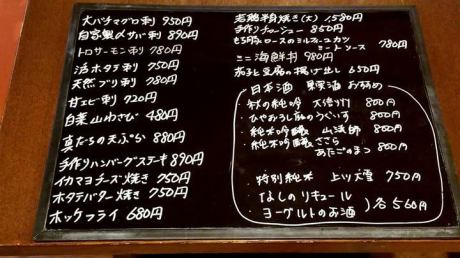 大バチマグロ刺 950円
自家製〆サバ刺 890円
トロサーモン刺 780円
活ホタテ刺 750円
天然ブリ刺 780円
甘エビ刺 720円
白菜山わさび 480円
真たちの天ぷら 880円
手作りハンバーグステーキ 890円
イカマヨチーズ焼き 750円
ホタテバター焼き 750円
ホッケフライ 680円
若鶏半身焼き(大) 1,580円
手作りチャーシュー 850円
もち豚ロースのミルフィーユカツ
ミートソース 780円
ミニ海鮮丼 980円
茄子と豆腐の揚げ出し 650円
日本酒 果実酒 おすすめ
秋の純吟 800円
ひやおろし 秋のうぐいす 800円
純米吟醸 山法師 800円
純米吟醸 ささら
あたごのまつ 800円
特別純米 上川大雪 750円
なしのリキュール
ヨーグルトのお酒 各560円